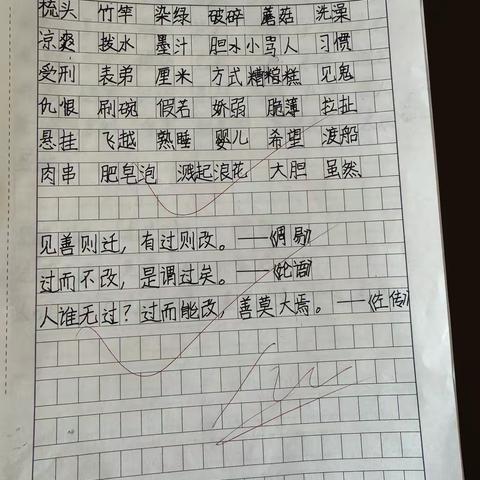 梳头 竹竿 染绿 破碎 蘑菇 洗澡
凉爽 拨水 墨汁 胆水小骂人 习惯
受刑 表弟 厘米 方式 糟糕 见鬼
仇恨 刷碗 假若 娇弱 脆薄 拉扯
悬挂 飞越 熟睡 婴儿 希望 渡船
肉串 肥皂泡 溅起浪花 大胆 虽然
见善则迁，有过则改。——《周易》
过而不改，是谓过矣。——《论语》
人谁无过？过而能改，善莫大焉。——《左传》